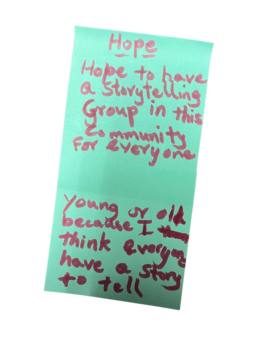 Hope
Hope to have
a Storytelling
Group in this
Community
For Everyone
Young or old
because I
think everyone
have a story
to tell